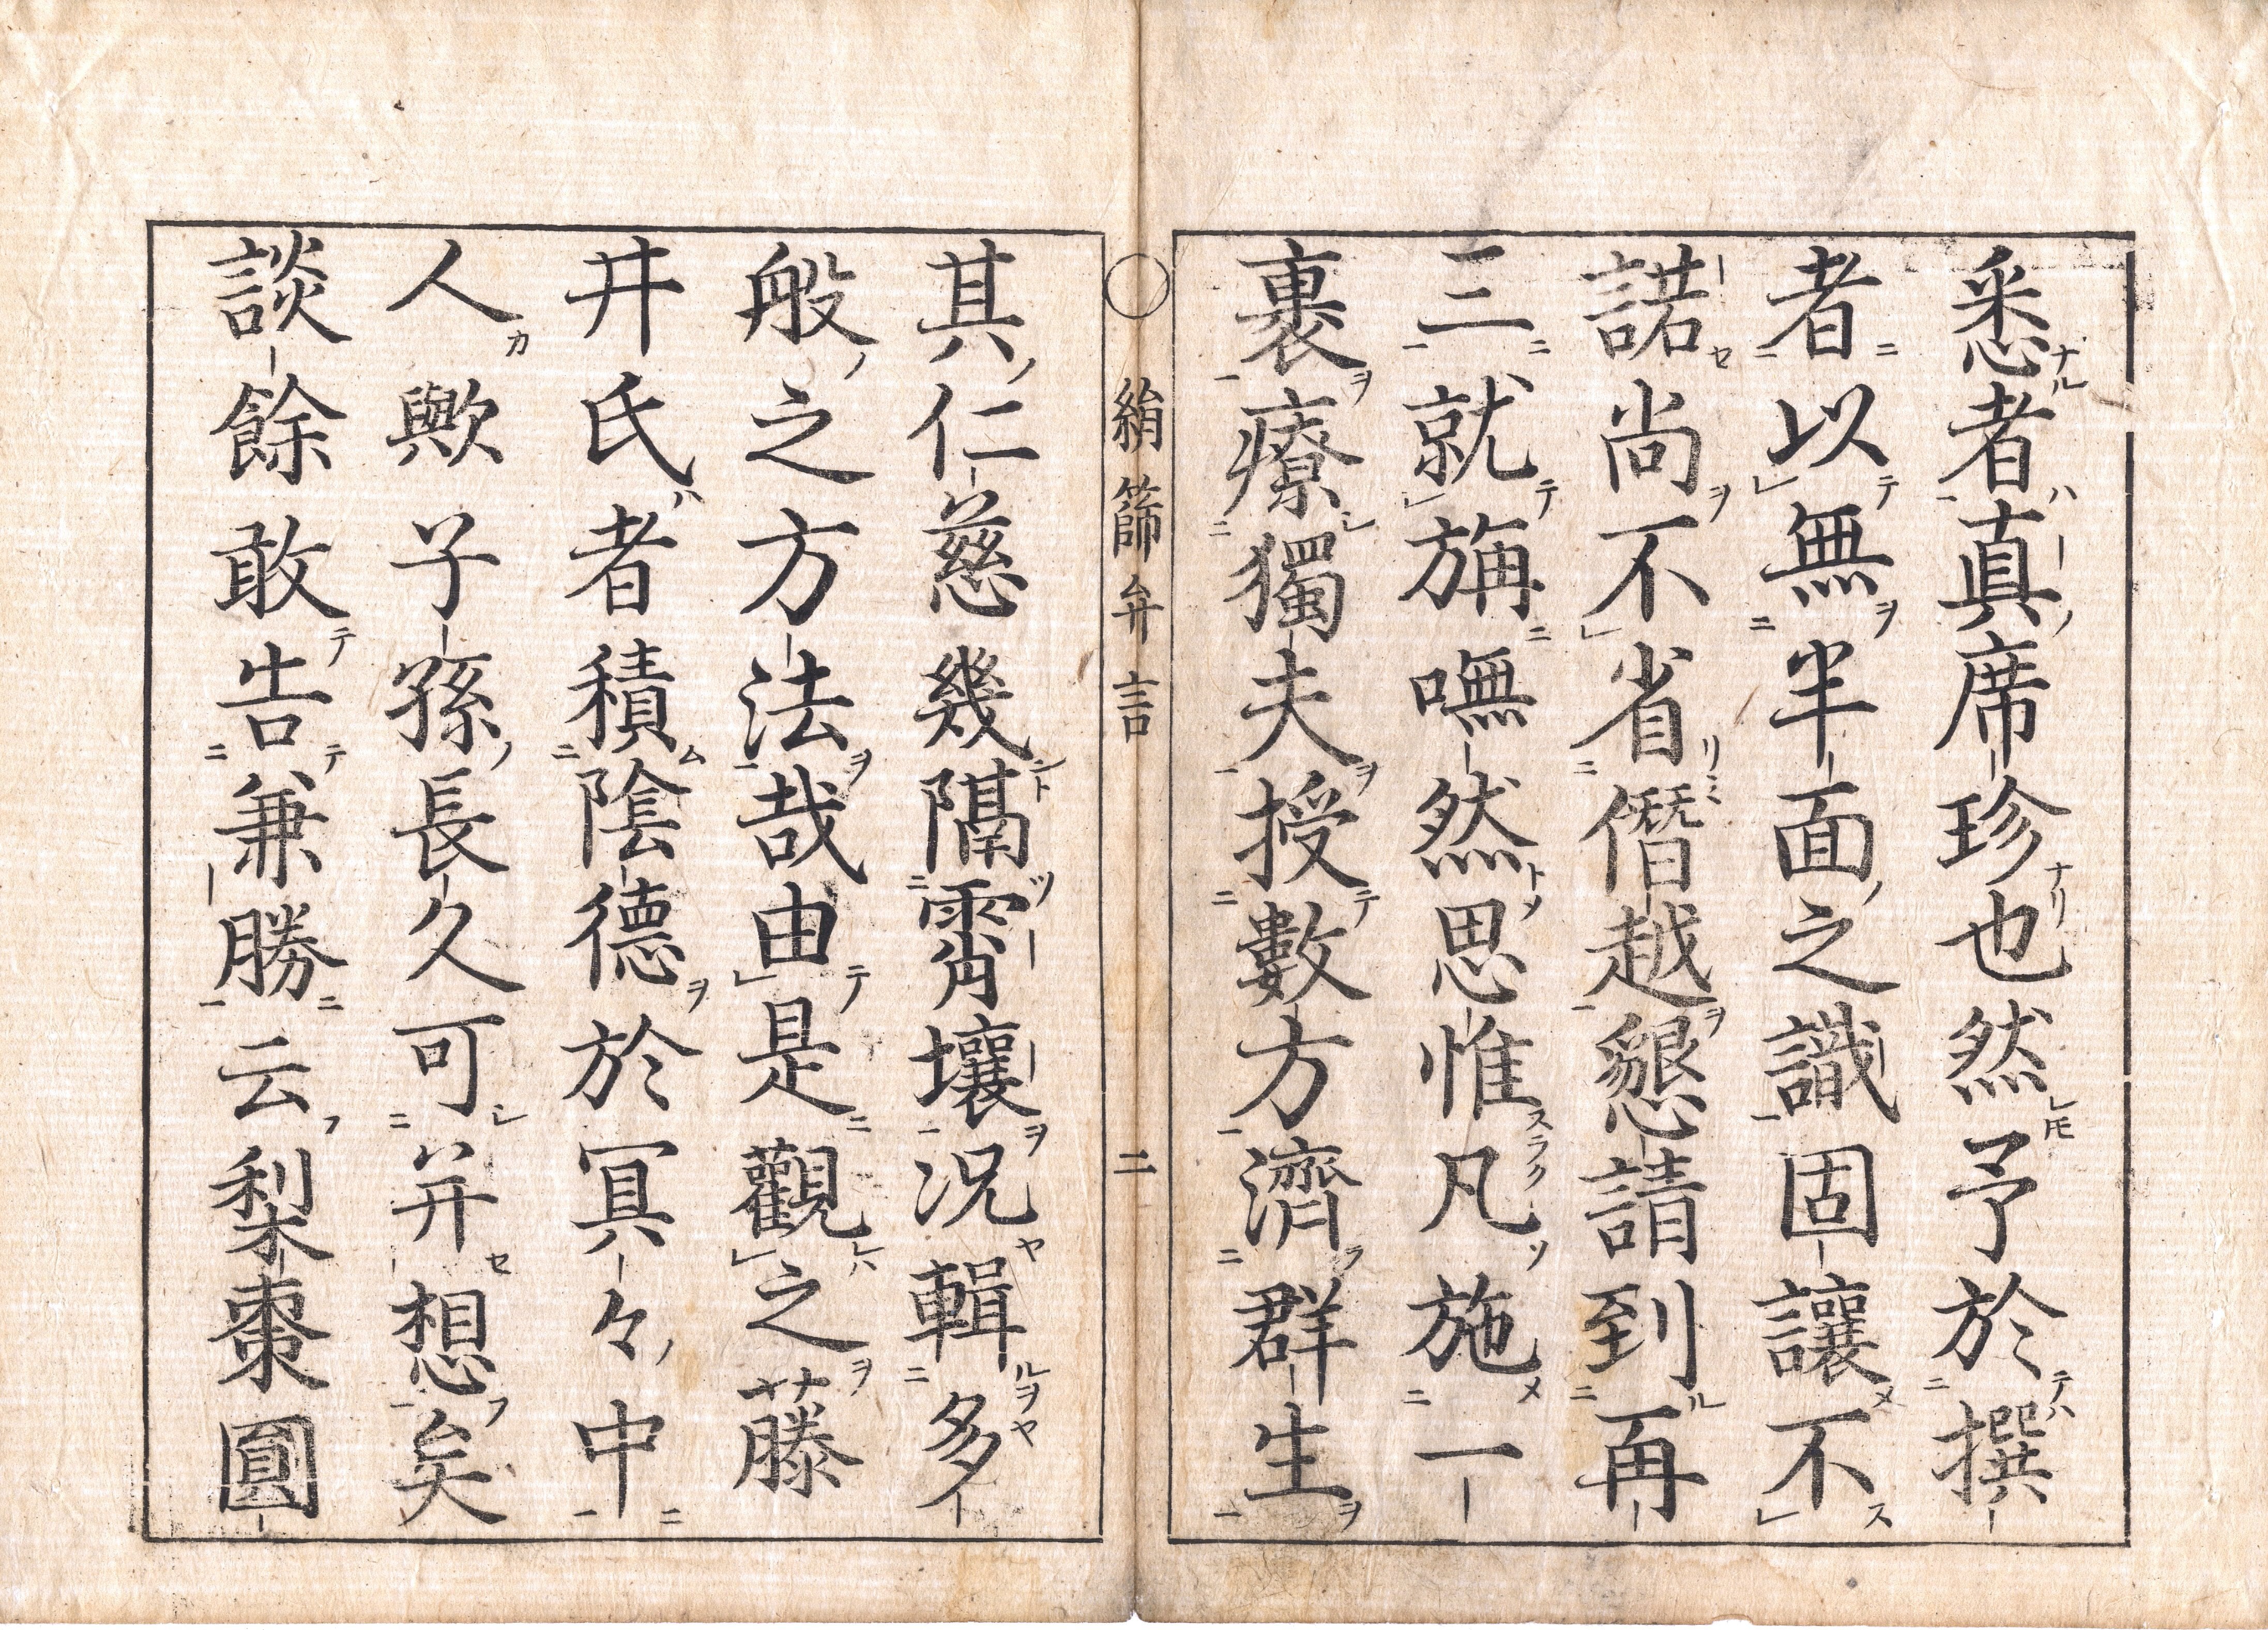 悉者真席珍也然予於撰
者以無半面之識固讓不
諾尚不省僭越懇請到再
三就旃嘸然思惟凡施一
裹療獨夫授數方濟群生
其仁慈幾隔霄壤況輯多
般之方法哉由是觀之藤
井氏者積陰德於冥々中
人歟子孫長久可并想矣
談餘敢告兼勝云梨棗圓
絹篩弁言
二